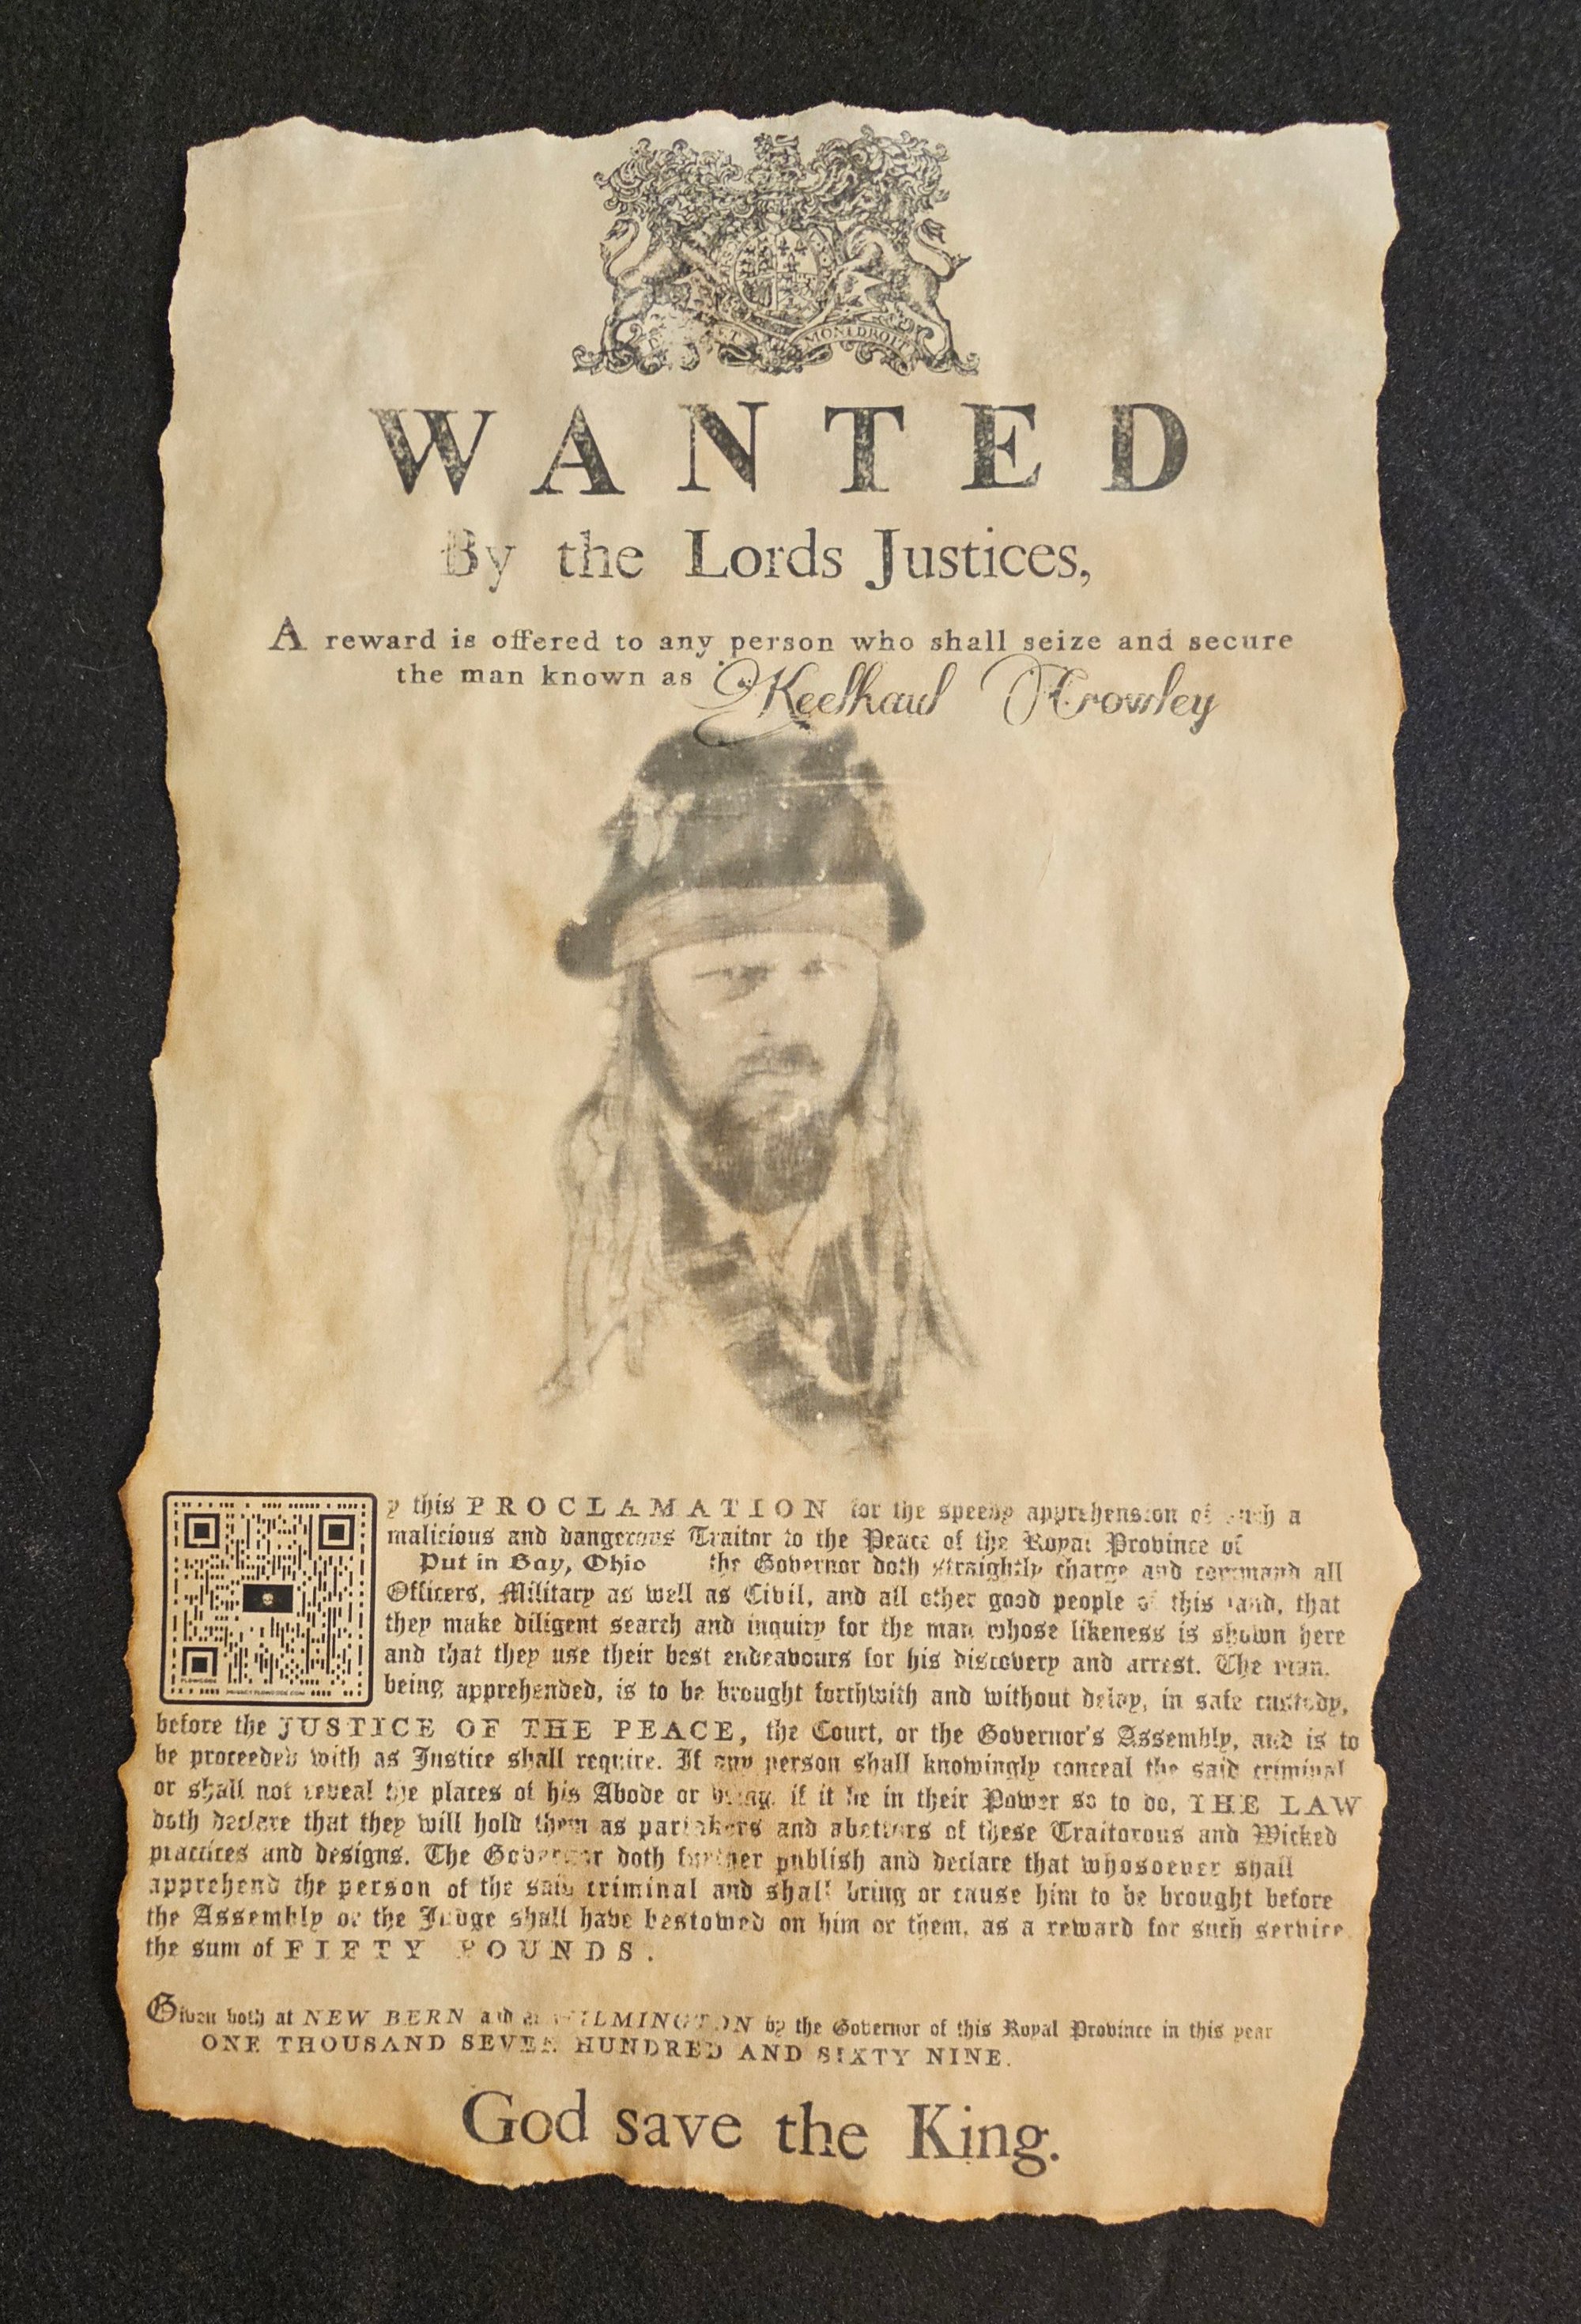 MON DROIT
WANTED
By the Lords Justices,
A reward is offered to any person who shall seize and secure
the man known as Keelhaul Crowley
y this PROCLAMATION for the speedy apprehension of such a
malicious and dangerous Traitor to the Peace of the Royal Province of
Put in Bay, Ohio the Governor doth straightly charge and command all
Officers, Military as well as Civil, and all other good people of this land, that
they make diligent search and inquiry for the man whose likeness is shown here
and that they use their best endeavours for his discovery and arrest. The man,
being apprehended, is to be brought forthwith and without delay, in safe custody,
FLOWCODE PRIVACY.FLOWCODE.COM
before the JUSTICE OF THE PEACE, the Court, or the Governor's Assembly, and is to
be proceeded with as Justice shall require. If any person shall knowingly conceal the said criminal
or shall not reveal the places of his Abode or being, if it be in their Power so to do, THE LAW
doth declare that they will hold them as partakers and abettors of these Traitorous and Wicked
practices and designs. The Governor doth further publish and declare that whosoever shall
apprehend the person of the said criminal and shall bring or cause him to be brought before
the Assembly or the Judge shall have bestowed on him or them, as a reward for such service,
the sum of FIFTY POUNDS.
Given both at NEW BERN and at WILMINGTON by the Governor of this Royal Province in this year
ONE THOUSAND SEVEN HUNDRED AND SIXTY NINE.
God save the King.